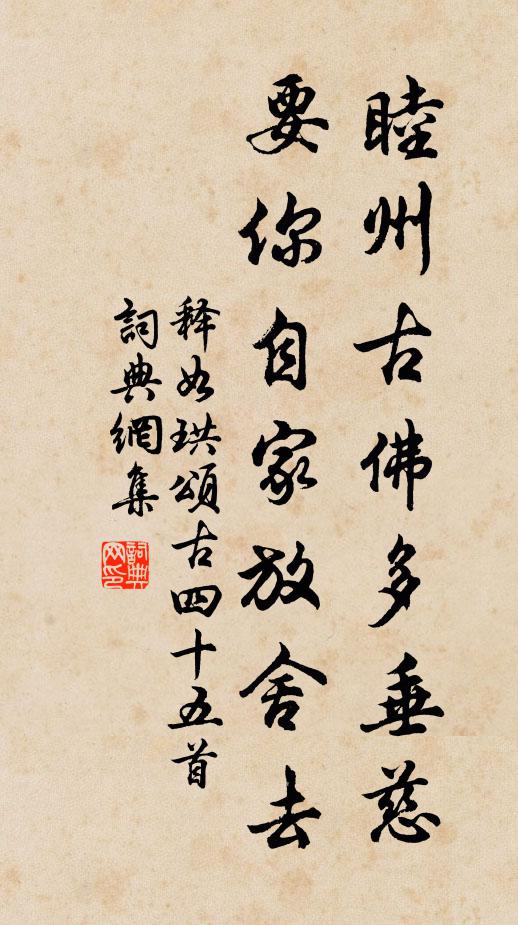 睦州古佛多垂慈
要你自家放舍去
释如珙頌古四十五首
詞典網集
詞典网印